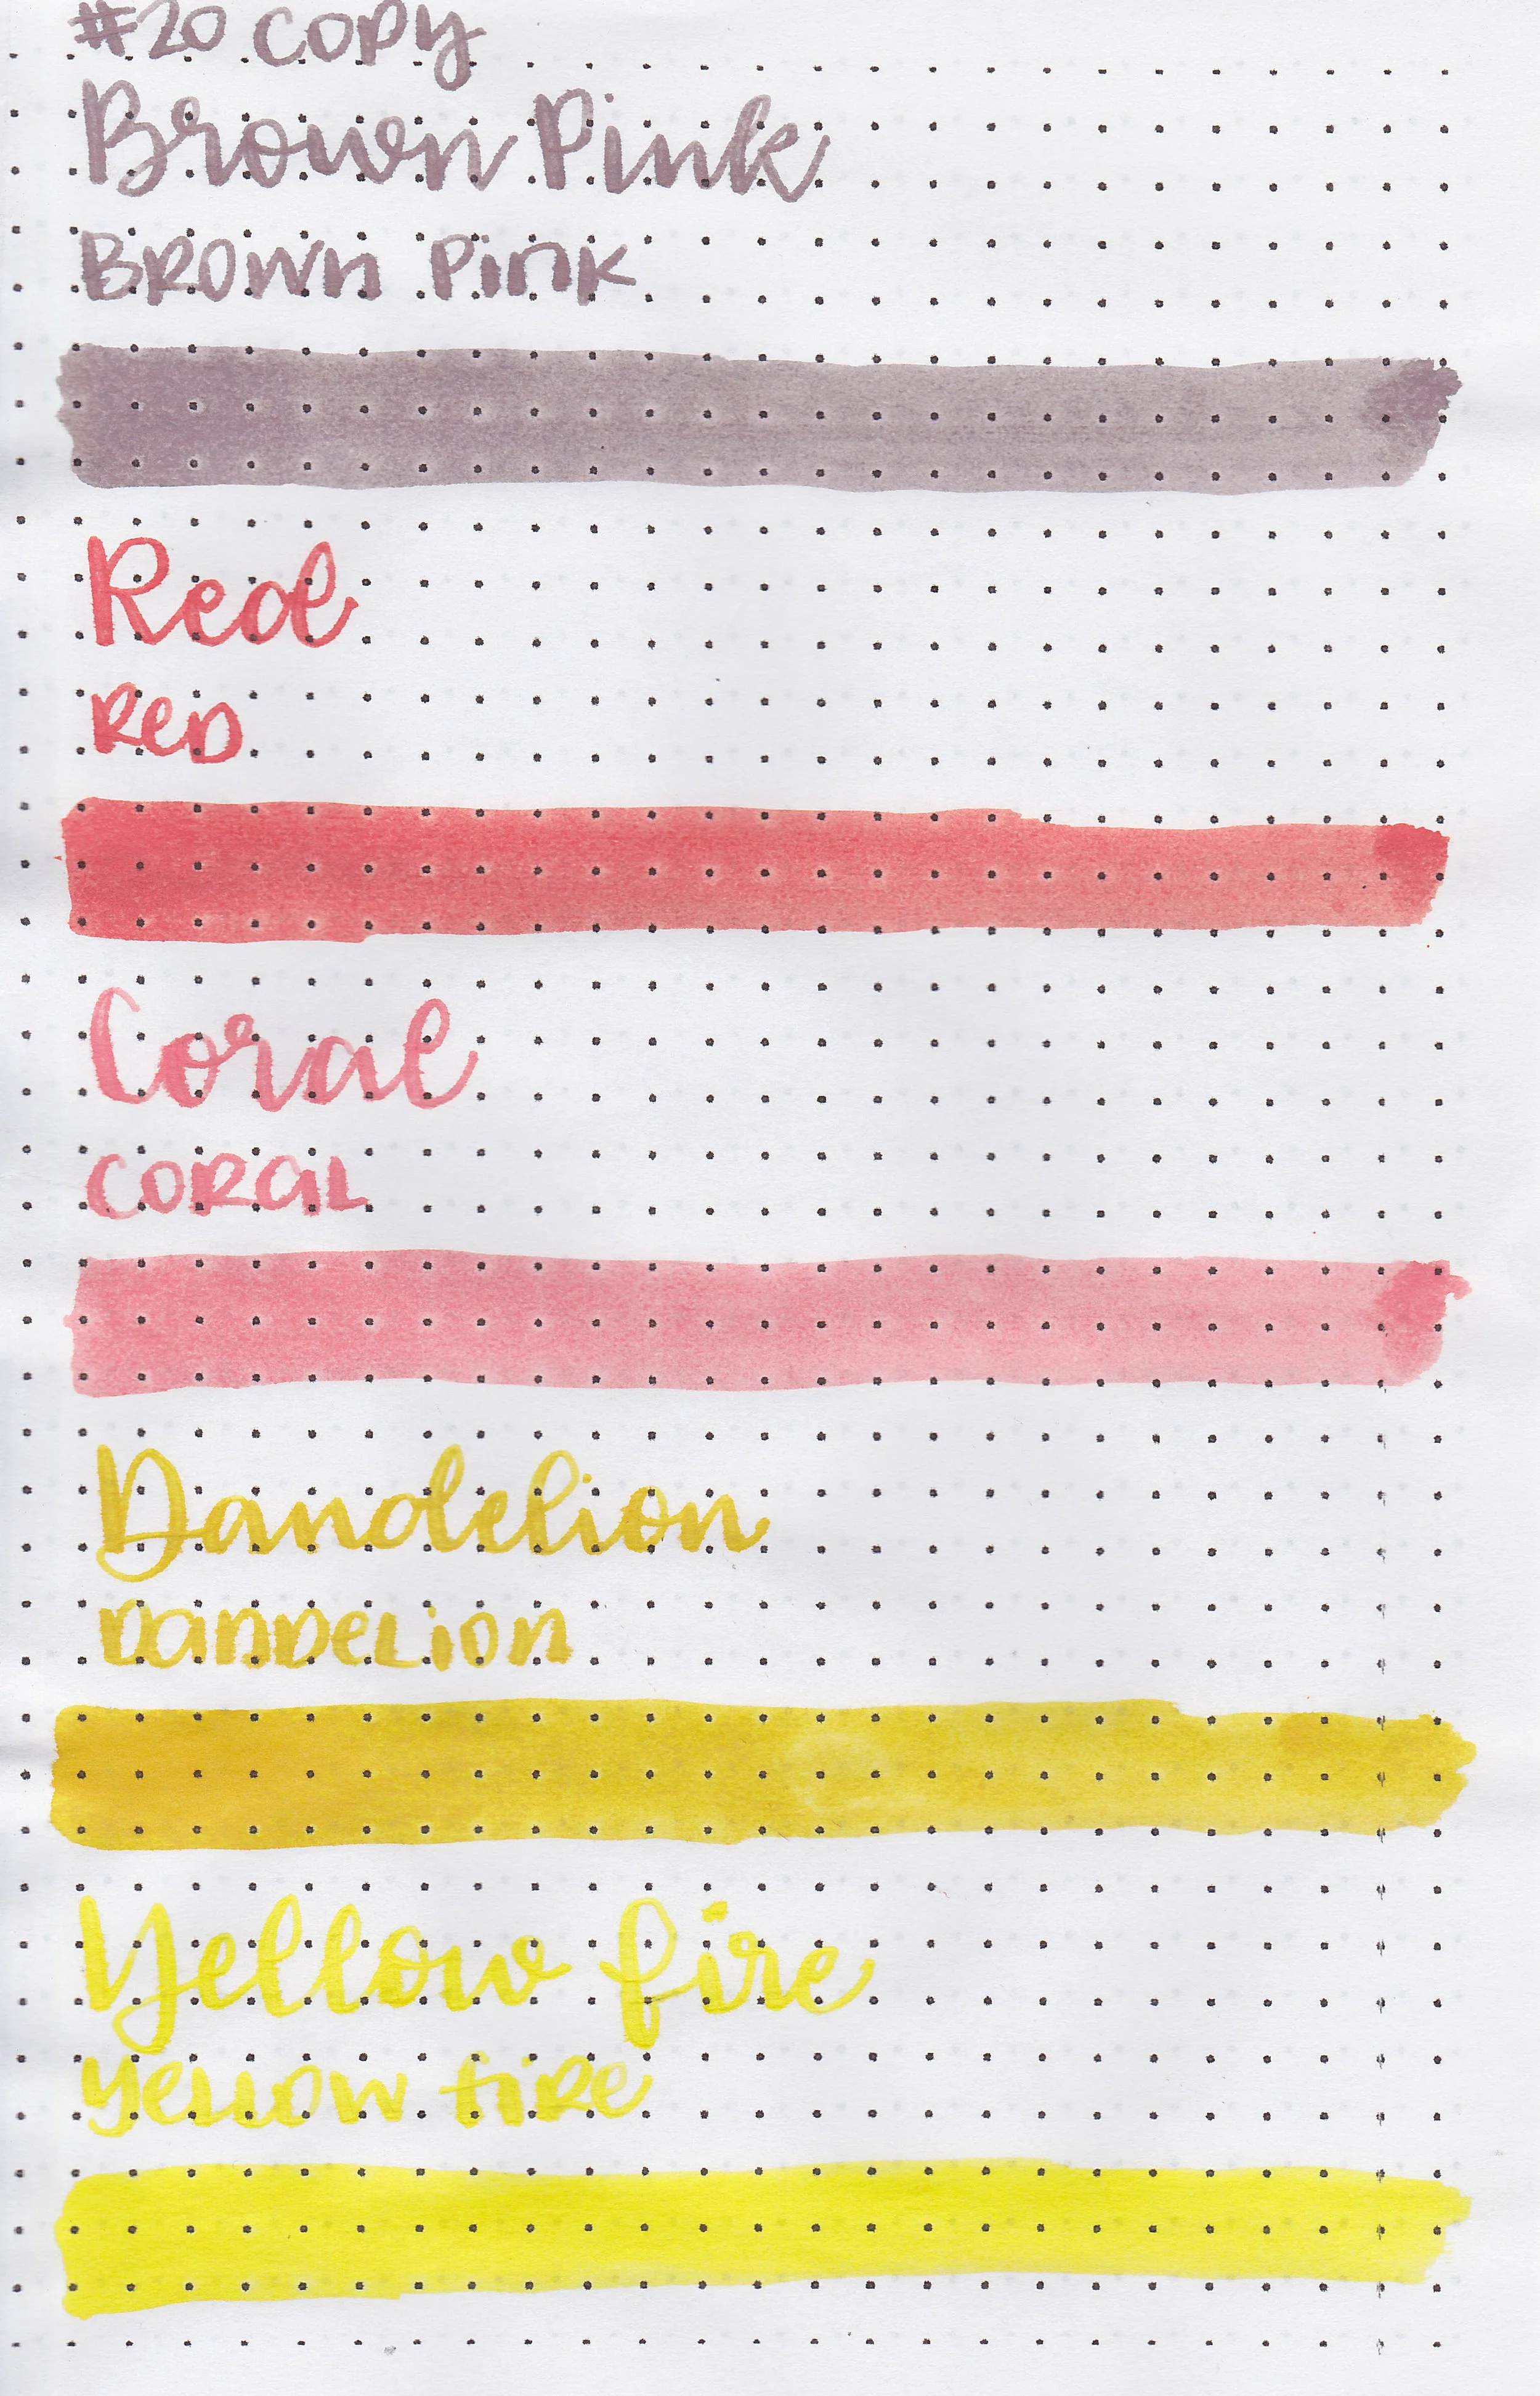 #20 COPY
Brown Pink
BROWN PINK
Red
RED
Coral
CORAL
Dandelion
DANDELION
Yellow fire
YELLOW FIRE